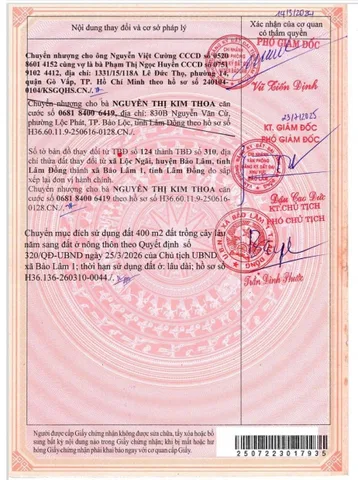 Nội dung thay đổi và cơ sở pháp lý
Xác nhận của cơ quan
có thẩm quyền
Chuyển nhượng cho ông Nguyễn Việt Cường CCCD số 0520
8601 4152 cùng vợ là bà Phạm Thị Ngọc Huyền CCCD số 0751
9102 4412, địa chỉ: 1331/15/118A Lê Đức Thọ, phường 14,
quận Gò Vấp, TP. Hồ Chí Minh theo hồ sơ số 240104-
0104/KSGQHS.CN./.
PHÓ GIÁM ĐỐC
Vũ Tiến Định
Chuyển nhượng cho bà NGUYỄN THỊ KIM THOA có căn
cước số 0681 8400 6419, địa chỉ: 830B Nguyễn Văn Cừ,
phường Lộc Phát, TP. Bảo Lộc, tỉnh Lâm Đồng theo hồ sơ số
H36.60.11.9-250616-0128.CN./.
Số tờ bản đồ thay đổi từ TBĐ số 124 thành TBĐ số 310, địa
chỉ thửa đất thay đổi từ xã Lộc Ngãi, huyện Bảo Lâm, tỉnh
Lâm Đồng thành xã Bảo Lâm 1, tỉnh Lâm Đồng do sắp
xếp lại đơn vị hành chính.
Chuyển nhượng cho bà NGUYỄN THỊ KIM THOA có căn
cước số 0681 8400 6419 theo hồ sơ số H36.60.11.9-250616-
0128.CN./.
KT. GIÁM ĐỐC
PHÓ GIÁM ĐỐC
Chuyển mục đích sử dụng đất 400 m2 đất trồng cây lâu
năm sang đất ở nông thôn theo Quyết định số
320/QĐ-UBND ngày 25/3/2026 của Chủ tịch UBND
xã Bảo Lâm 1; thời hạn sử dụng đất ở: lâu dài; hồ sơ số
H36.136-260310-0044./.
KT.CHỦ TỊCH
PHÓ CHỦ TỊCH
Trần Đình Phước
Người được cấp Giấy chứng nhận không được sửa chữa, tẩy xóa hoặc bổ
sung bất kỳ nội dung nào trong Giấy chứng nhận; khi bị mất hoặc hư
hỏng Giấy chứng nhận phải khai báo ngay với cơ quan cấp Giấy.
2507223017935